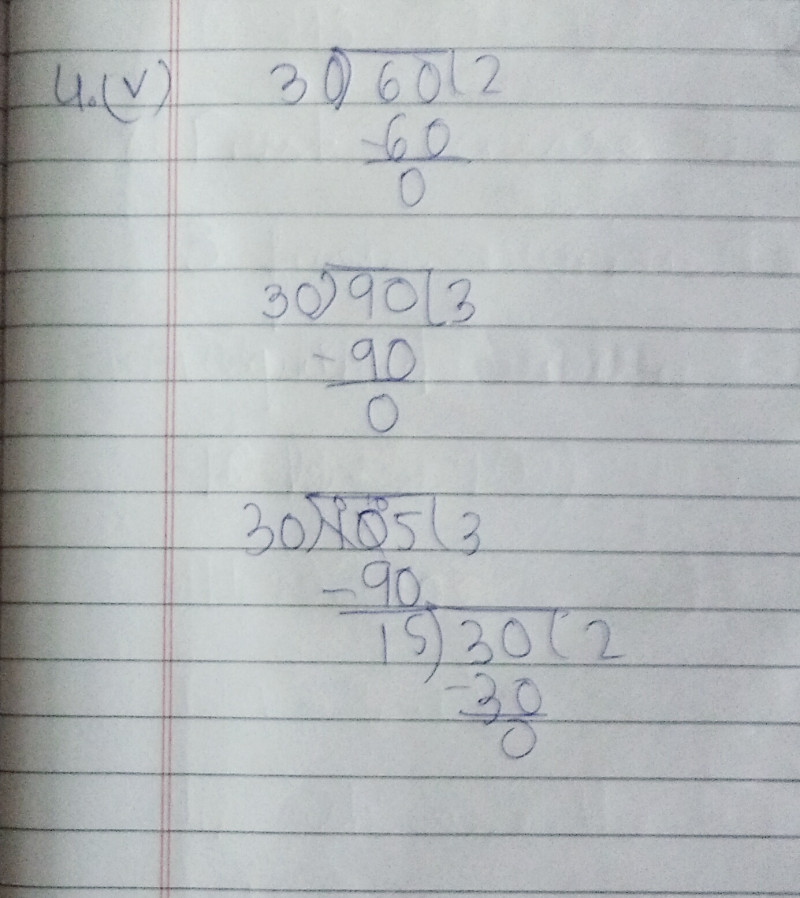 4.(v) 30)60(2
-60
0
30)90(3
-90
0
30)105(3
-90
15)30(2
-30
0